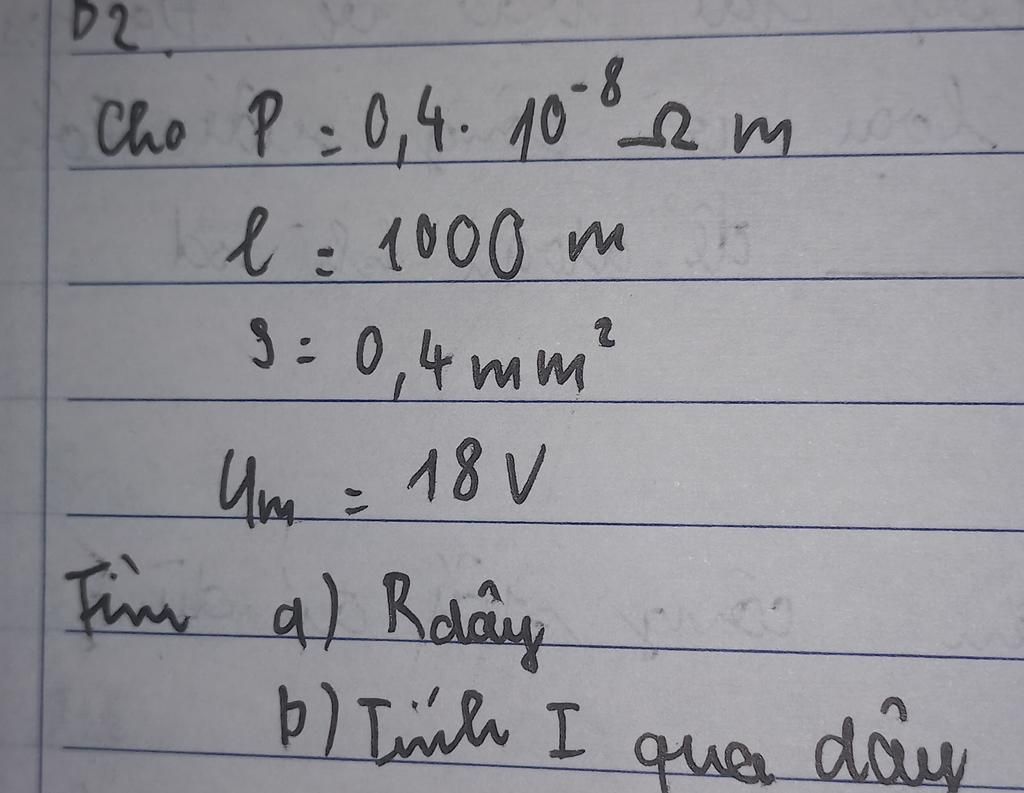 D2.
Cho P = 0,4. 10⁻⁸ Ω m
l = 1000 m
S = 0,4 mm²
Um = 18 V
Tìm a) Rdây
b) Tính I qua dây